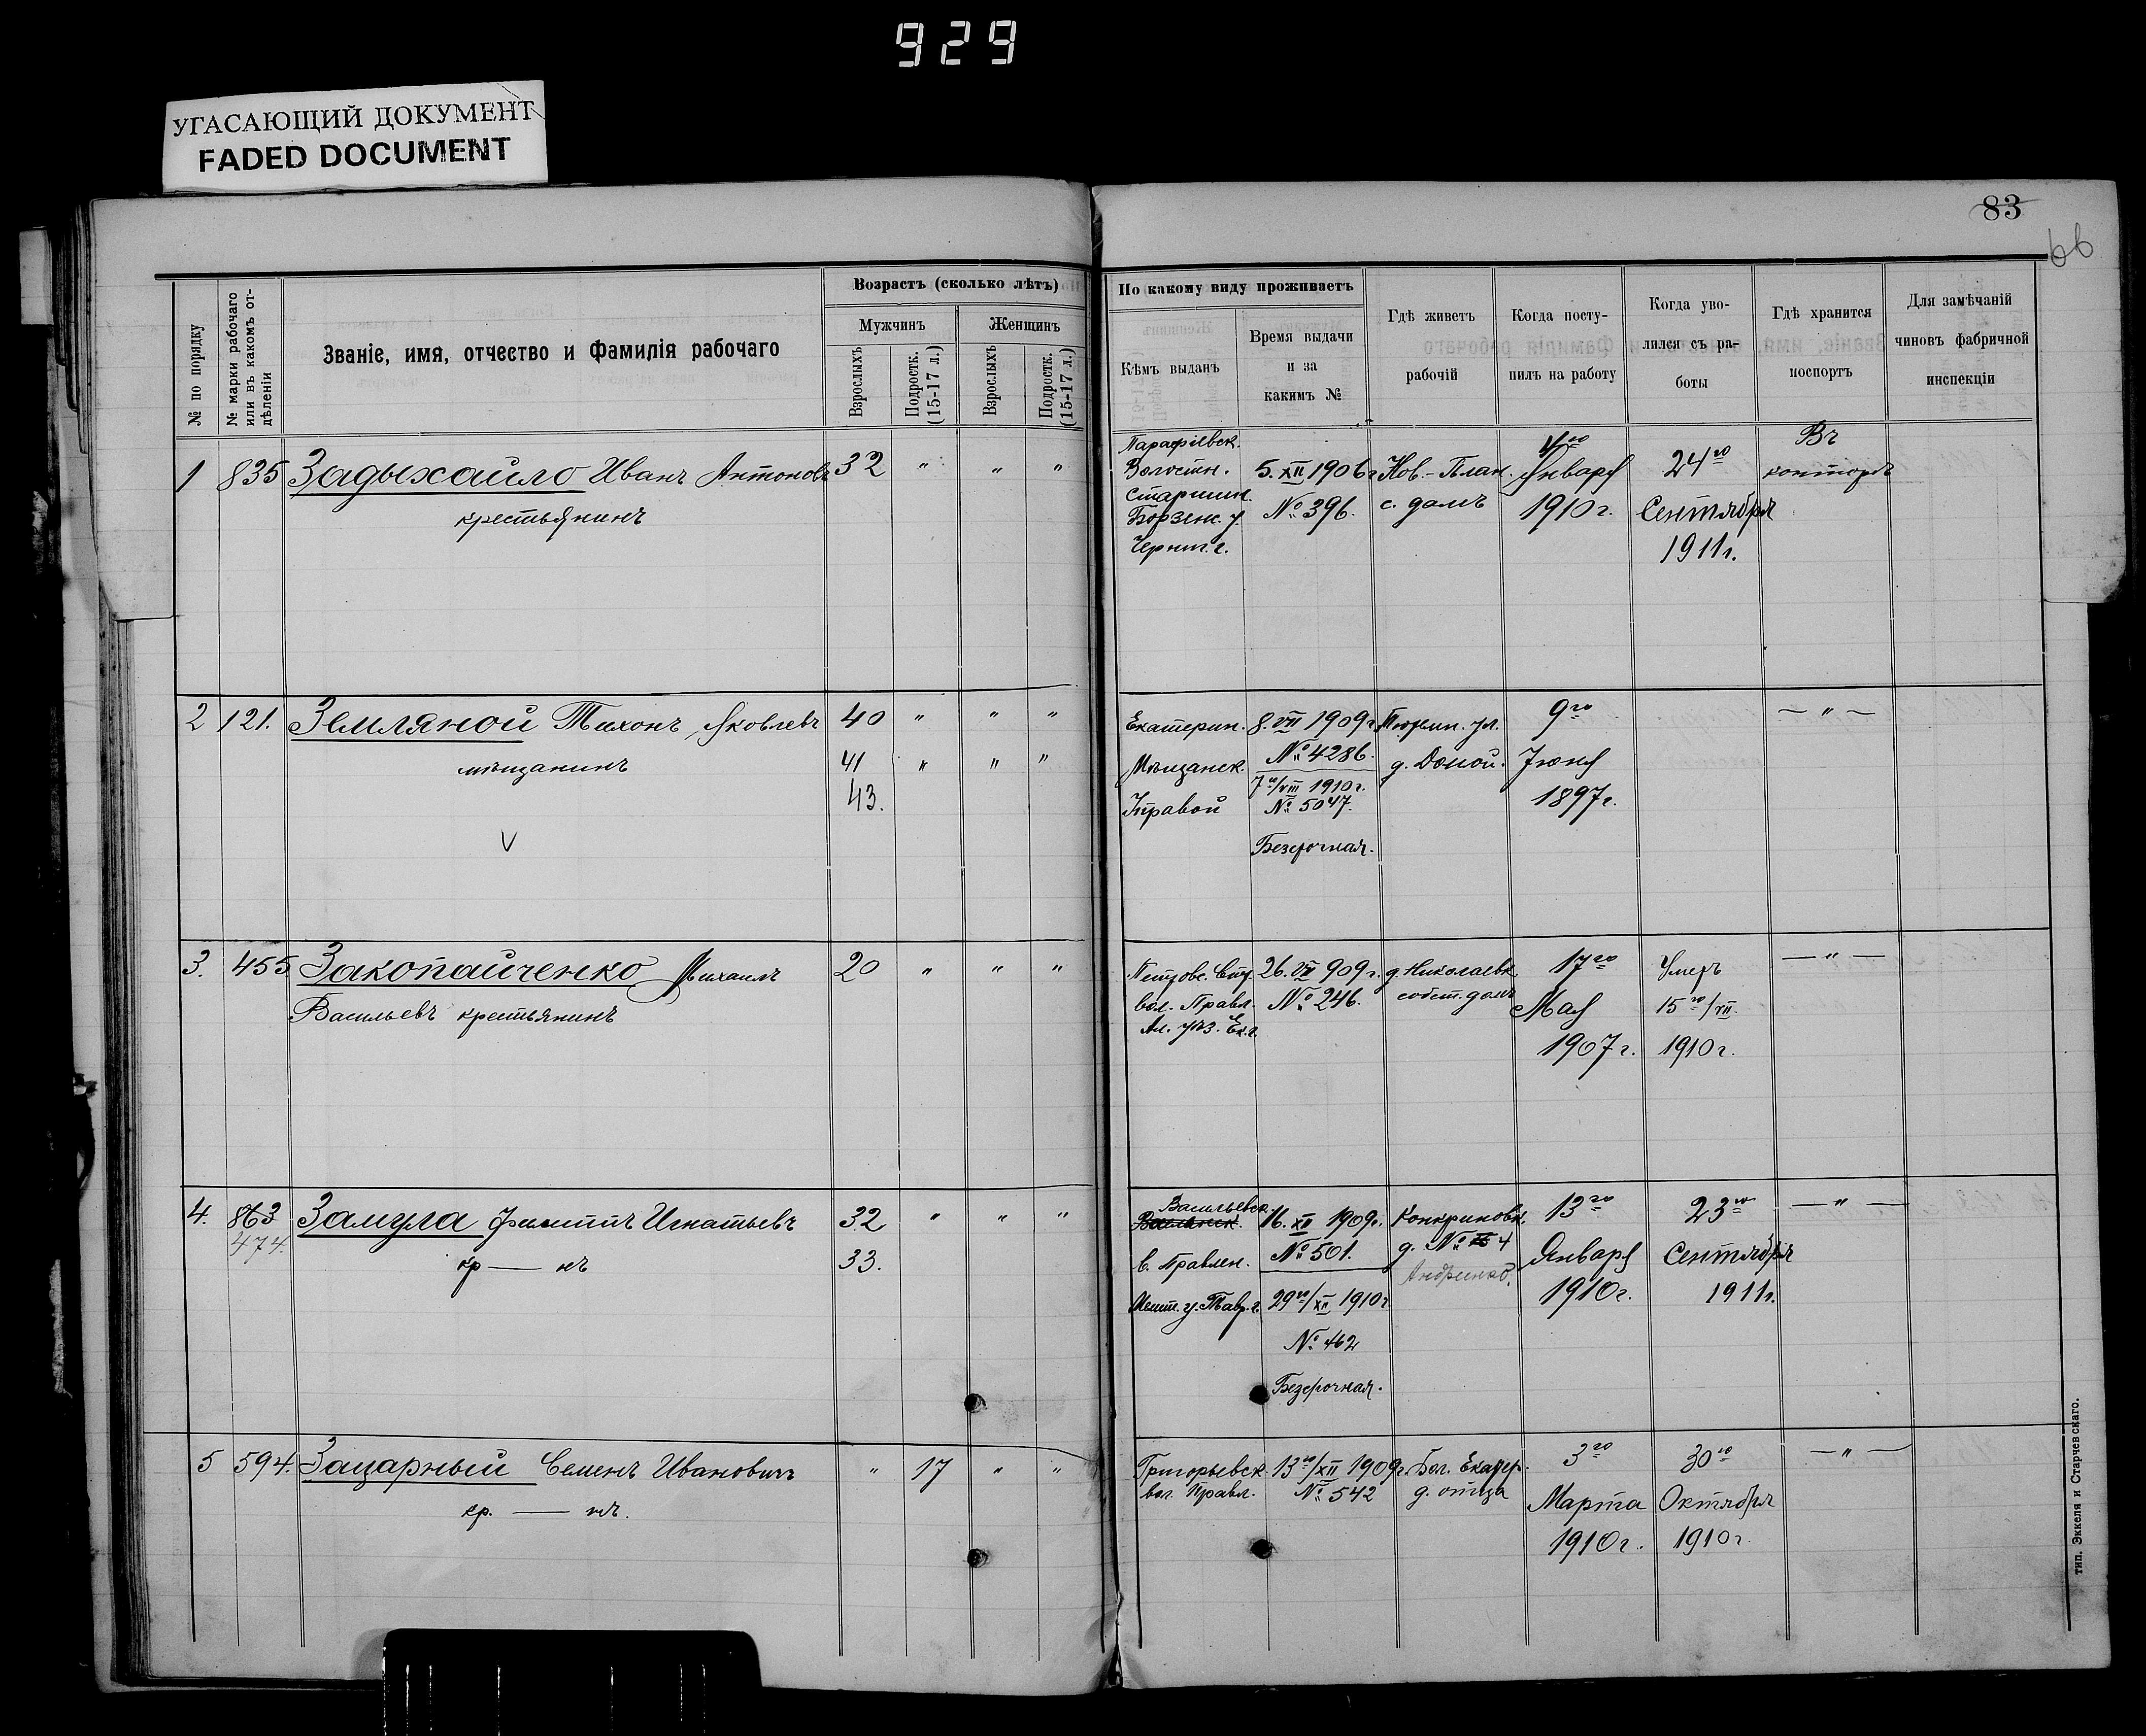 929
УГАСАЮЩИЙ ДОКУМЕНТ
FADED DOCUMENT
83
66
№ по порядку
№ марки рабочаго
или въ какомъ от-
дѣленіи
Званіе, имя, отчество и фамилія рабочаго
Возрастъ (сколько лѣтъ)
Мужчинъ
Женщинъ
Взрослыхъ
Подростк.
(15-17 л.)
Взрослыхъ
Подростк.
(15-17 л.)
По какому виду проживаетъ
Кѣмъ выданъ
Время выдачи
и за
какимъ №
Гдѣ живетъ
рабочій
Когда посту-
пилъ на работу
Когда уво-
лился съ ра-
боты
Гдѣ хранится
поспортъ
Для замѣчаній
чиновъ фабричной
инспекціи
1 835 Задыхайло Иванъ Антоновъ 32 " " "
крестьянинъ
Парафіевск.
Волостн.
Старшин.
Борзенс. у.
Черниг. г.
5. XII 1906 г
№ 396.
Нов.-План.
с. домъ
Января
1910 г.
24го
Сентября
1911 г.
Въ
конторѣ
2 121. Земляной Тихонъ Яковлевъ 40 " " "
мѣщанинъ 41 " " "
43.
V
Екатерин.
Мѣщанск.
Управой
8. VII 1909 г
№ 4286.
7го/VIII 1910 г.
№ 5047.
Безсрочная.
Тюрьм. ул.
9го
Іюня
1897 г.
— " —
3. 455 Закопайченко Михаилъ 20 " " "
Васильевъ крестьянинъ
вол. Правл.
Ал. уѣз. Ек. г.
26. VII 909 г.
№ 246.
д. Николаевк.
собст. домъ
17го
Мая
1907 г.
Умеръ
15го/VII.
1910 г.
— " —
4. 863 Замула Филиппъ Игнатьевъ 32 " " "
474.
кр — нъ 33.
Васильевск.
в. Правлен.
Мелит. у. Тавр. г.
16. XII 1909 г.
№ 501.
29го/XII 1910 г
№ 462
Безсрочная.
Конкриновк.
д. № 4
Андриенко.
13го
Января
1910 г.
23го
Сентября
1911 г.
— " —
5 594. Зацарный Семенъ Ивановичъ " 17 " "
кр. — нъ.
Григорьевск.
вол. Правл.
13го/XII 1909 г.
№ 542
Бол. Екатер.
д. отца
3го
Марта
1910 г.
30го
Октября
1910 г.
— " —
тип. Эккеля и Старчевскаго.